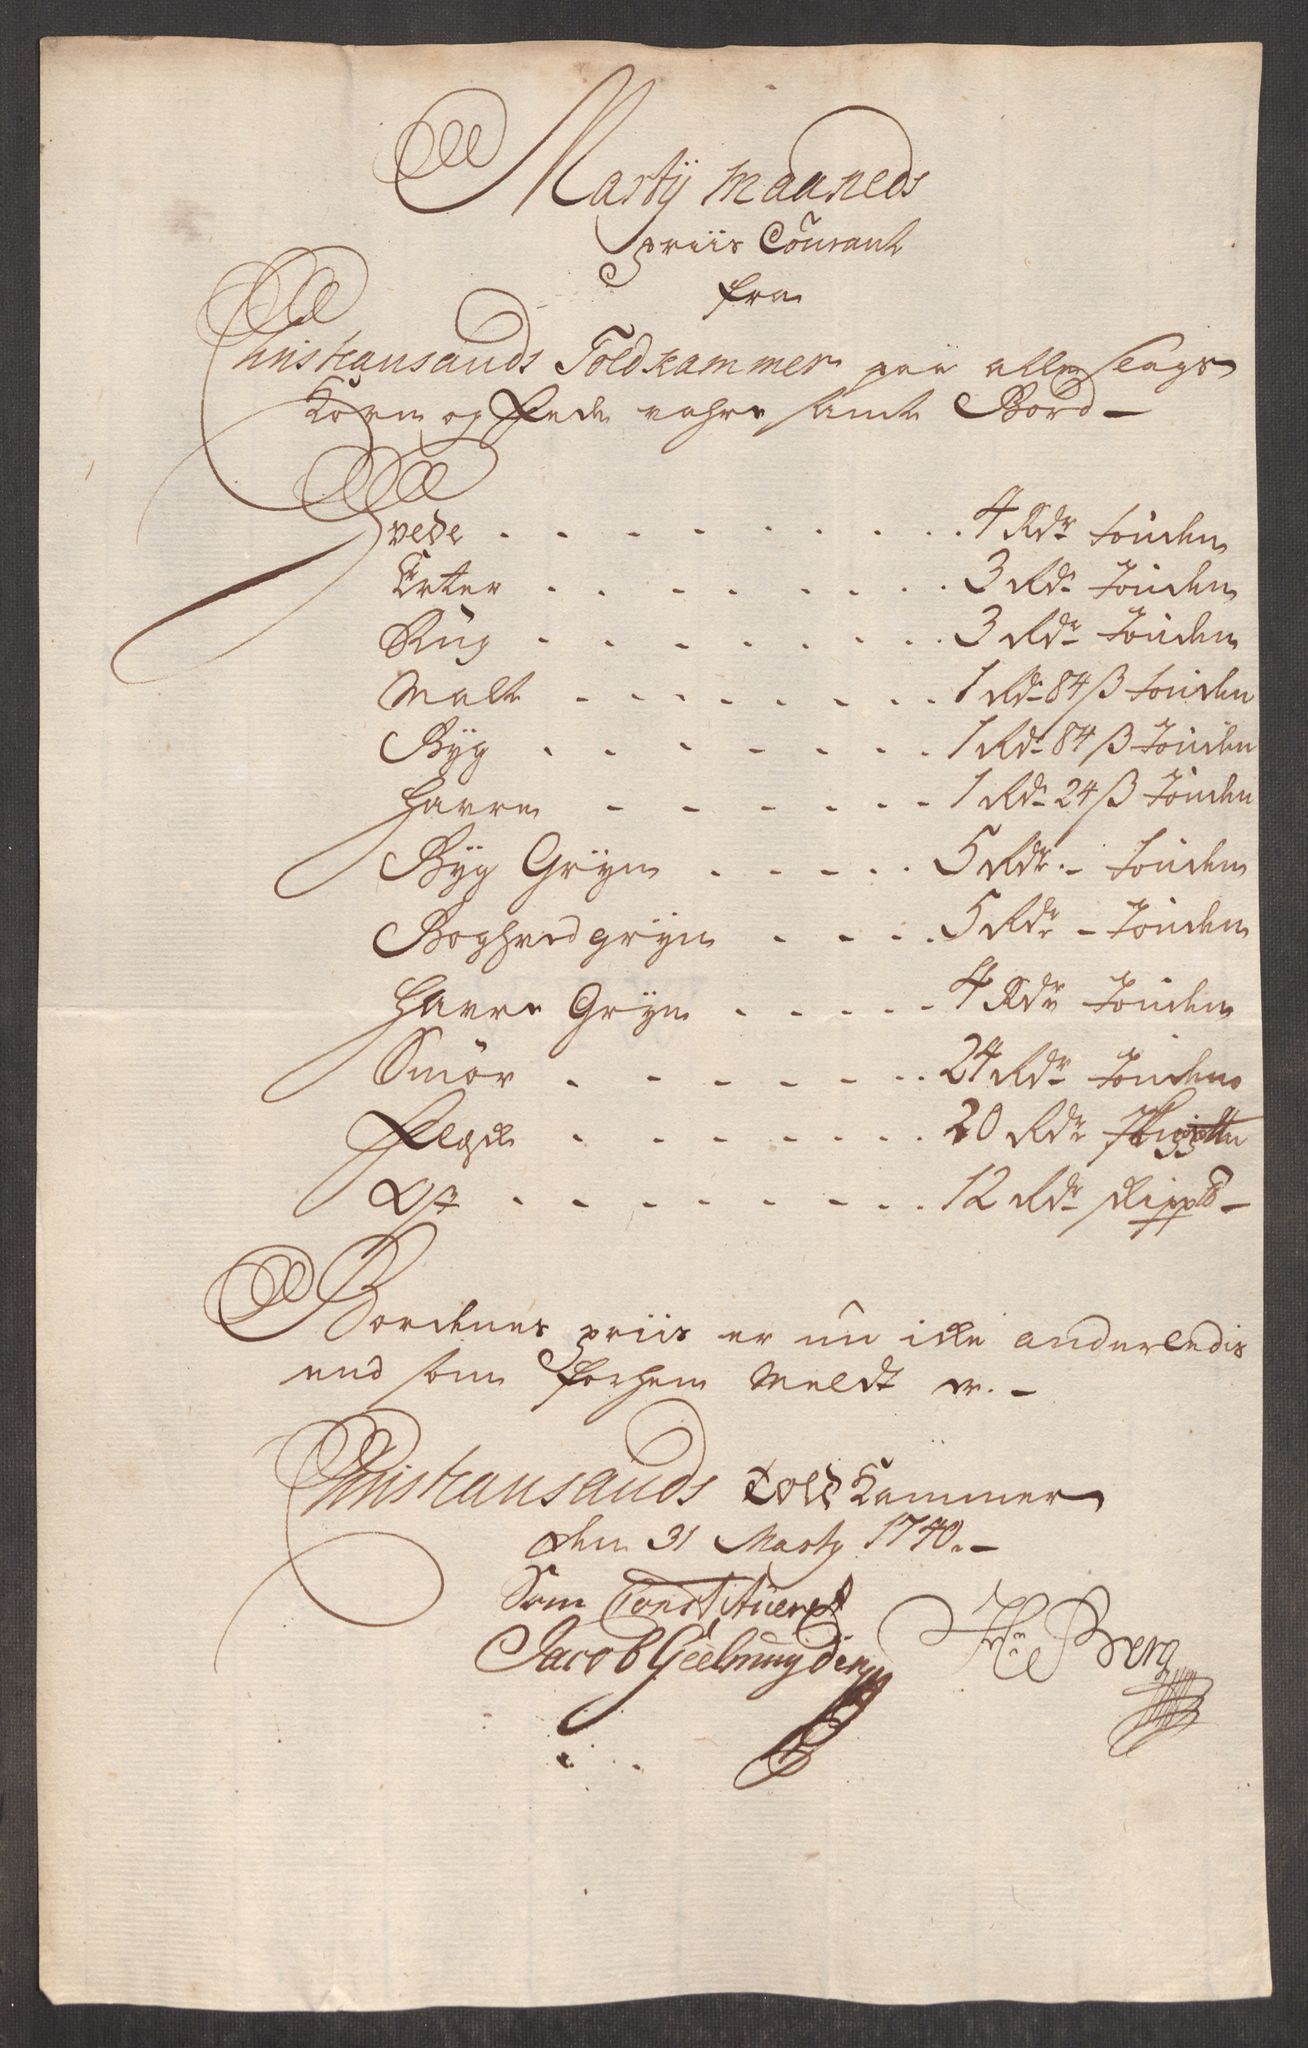 Martÿ Maaneds
priis Courant
fra
Christiansands Told Kammer paa alle slags
Korn og fede vahre samt Bord —
Hvede . . . . . . . . . 4 Rdr tønden
Erter . . . . . . . . 3 Rdr Tønden
Rug . . . . . . . . 3 Rdr Tønden
Malt . . . . . . . . 1 Rdr 84 β tønden
Bÿg . . . . . . . . 1 Rdr 84 β Tønden
Havre . . . . . . . 1 Rdr 24 β Tønden
Bÿg Grÿn . . . . . 5 Rdr - tønden
Boghvedgrÿn . . . . 5 Rdr - Tønden
Havre Grÿn . . . . . 4 Rdr Tønden
Smør . . . . . . . 24 Rdr Tønden
Flesk . . . . . . . 20 Rdr
Ost . . . . . . . . 12 Rdr skippd —
Bordenes priis er nu icke anderledis
end som forhen meldt er. —
Christiansands Told Kammer
den 31 Marty 1740. —
Som Constitueret
Jacob Geelmuyden Berg